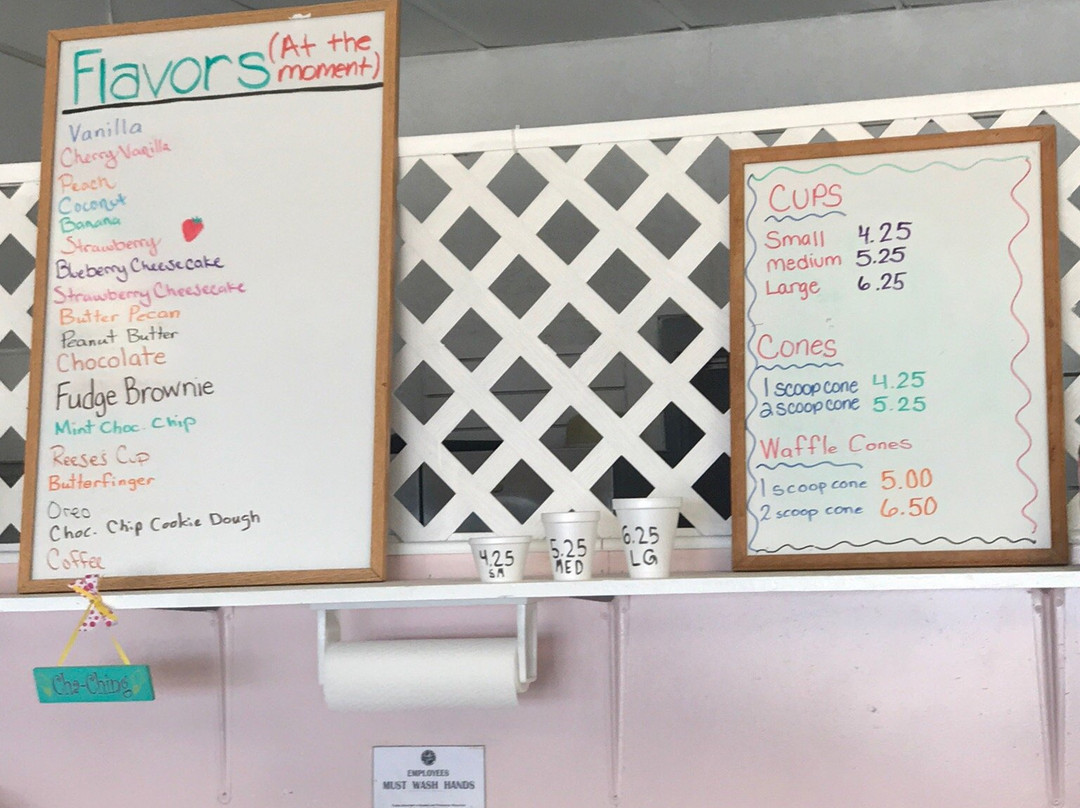 Flavors (At the
moment)
Vanilla
Cherry Vanilla
Peach
Coconut
Banana
Strawberry
Blueberry Cheesecake
Strawberry Cheesecake
Butter Pecan
Peanut Butter
Chocolate
Fudge Brownie
Mint Choc. Chip
Reese's Cup
Butterfinger
Oreo
Choc. Chip Cookie Dough
Coffee
Cha-Ching
4.25
SM
5.25
MED
6.25
LG
CUPS
Small 4.25
medium 5.25
Large 6.25
Cones
1 scoop cone 4.25
2 scoop cone 5.25
Waffle Cones
1 scoop cone 5.00
2 scoop cone 6.50
EMPLOYEES
MUST WASH HANDS